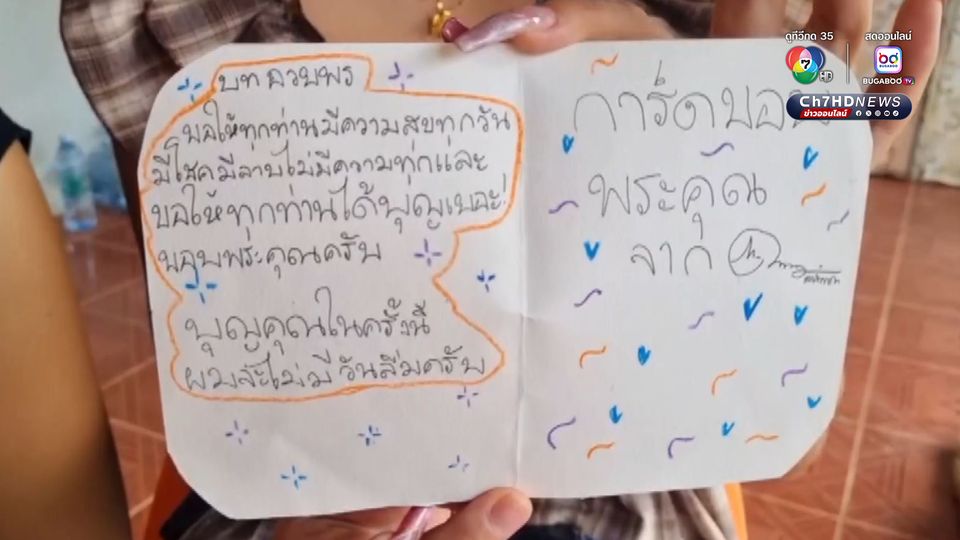 ดูทีวีกด 35
สดออนไลน์
7 HD
BUGABOO
BUGABOO TV
Ch7HDNEWS
ข่าวออนไลน์
บทอวยพร
ขอให้ทุกท่านมีความสุขทุกวัน
มีโชคมีลาบไม่มีความทุกและ
ขอให้ทุกท่านได้บุญเยอะ!
ขอบพระคุณครับ
บุญคุณในครั้งนี้
ผมจะไม่มีวันลืมครับ
การ์ดขอบ
พระคุณ
จาก